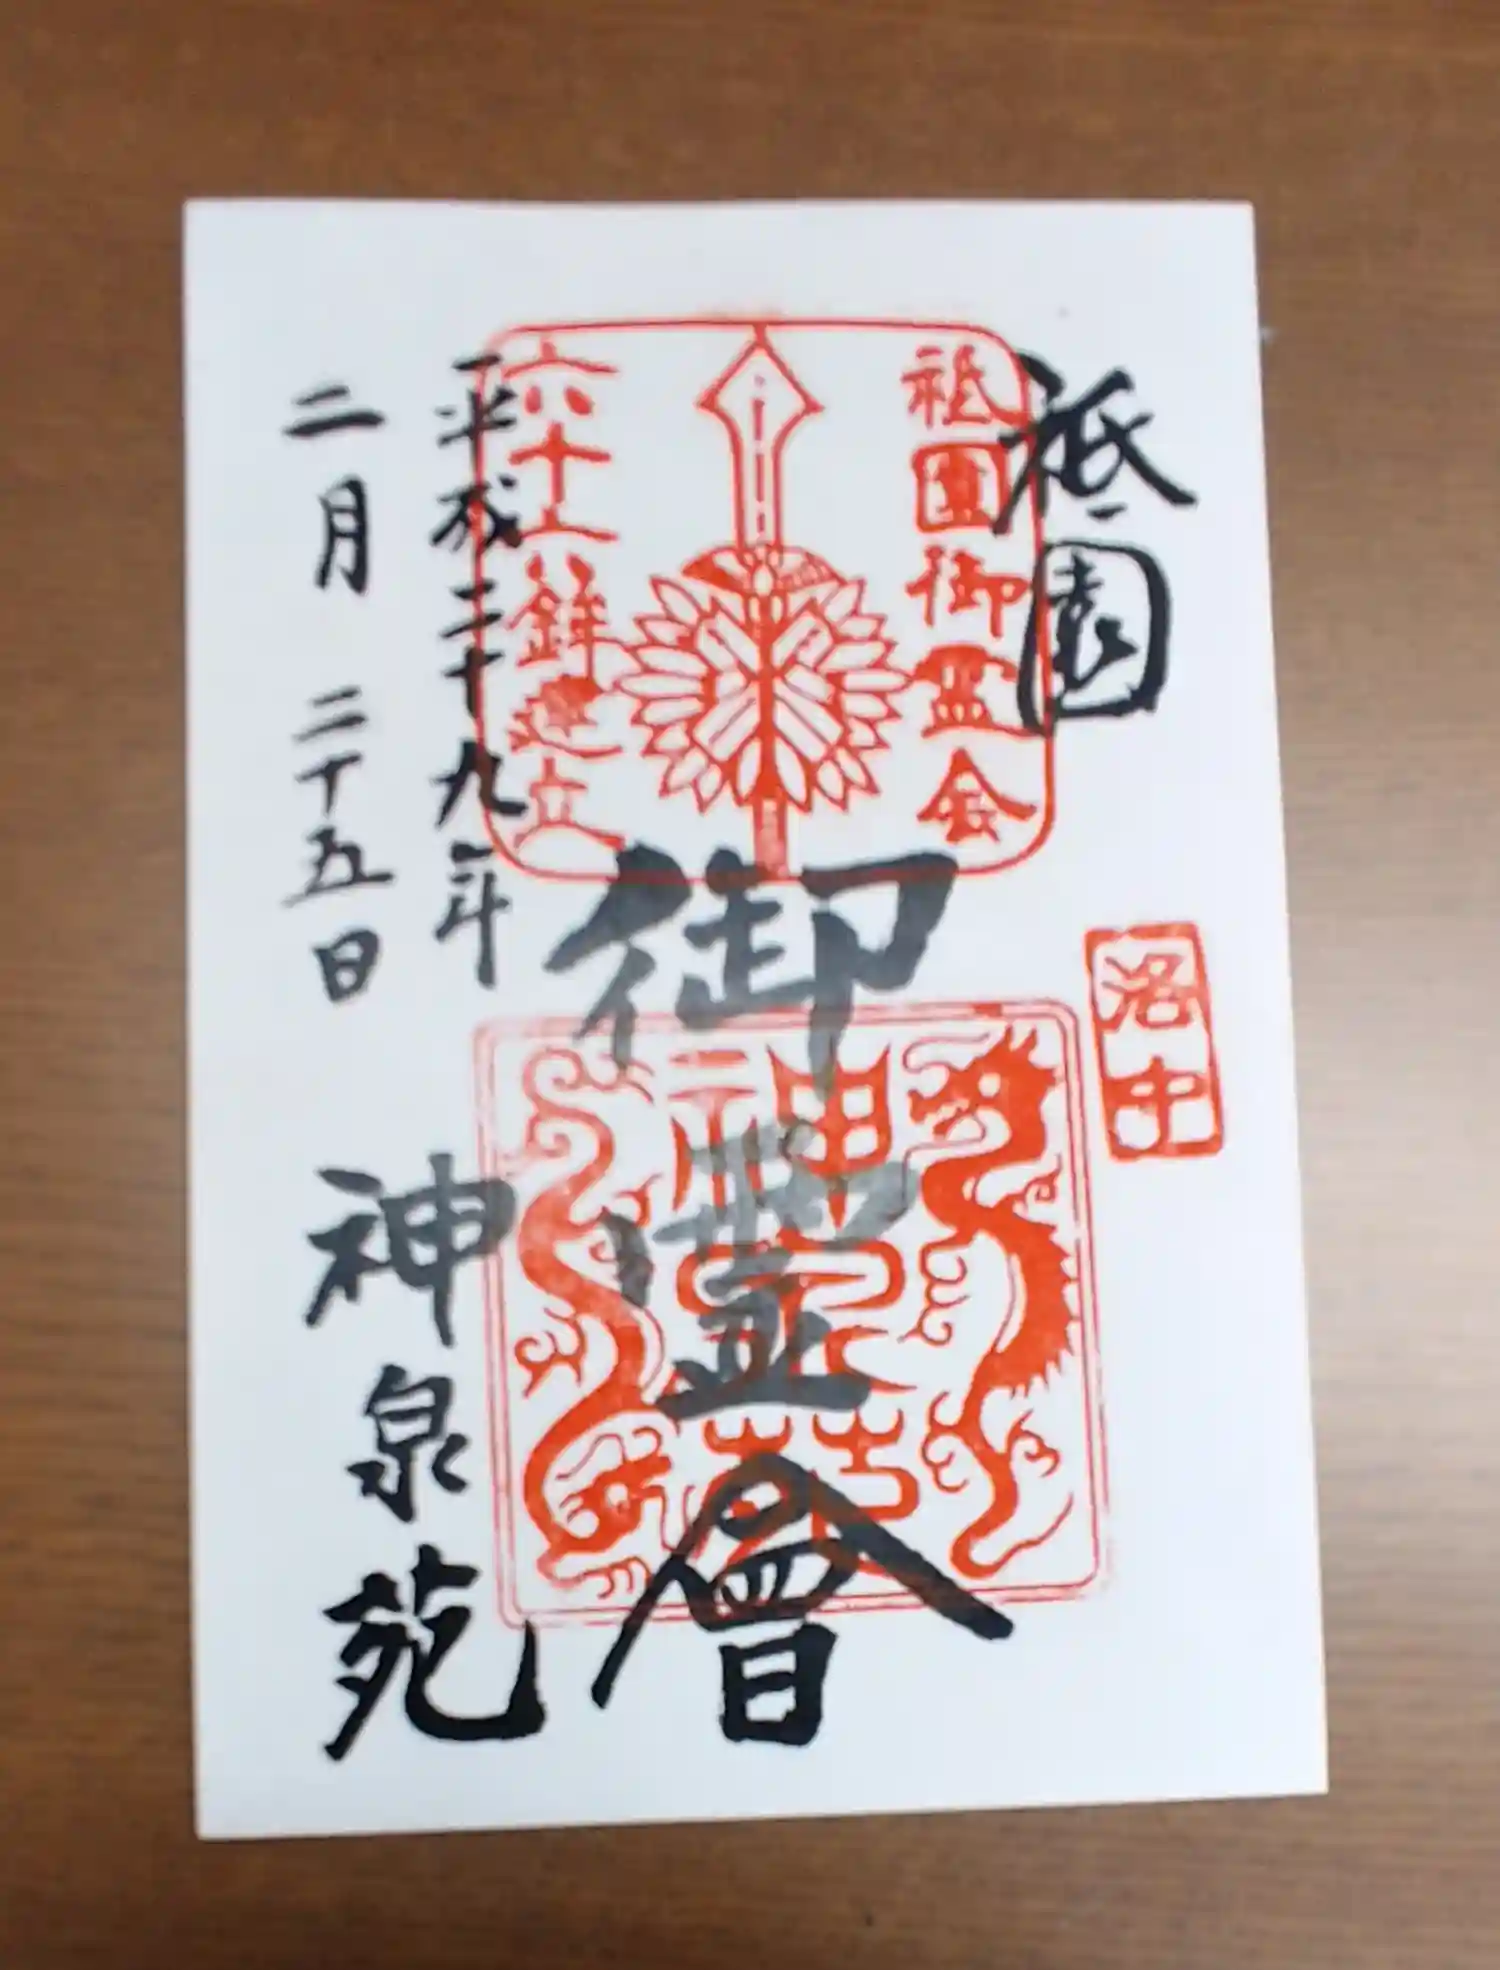 祇園
祇園御霊会
六十六鉾建立
洛中
御霊會
神泉苑
平成二十九年
二月二十五日
神泉苑